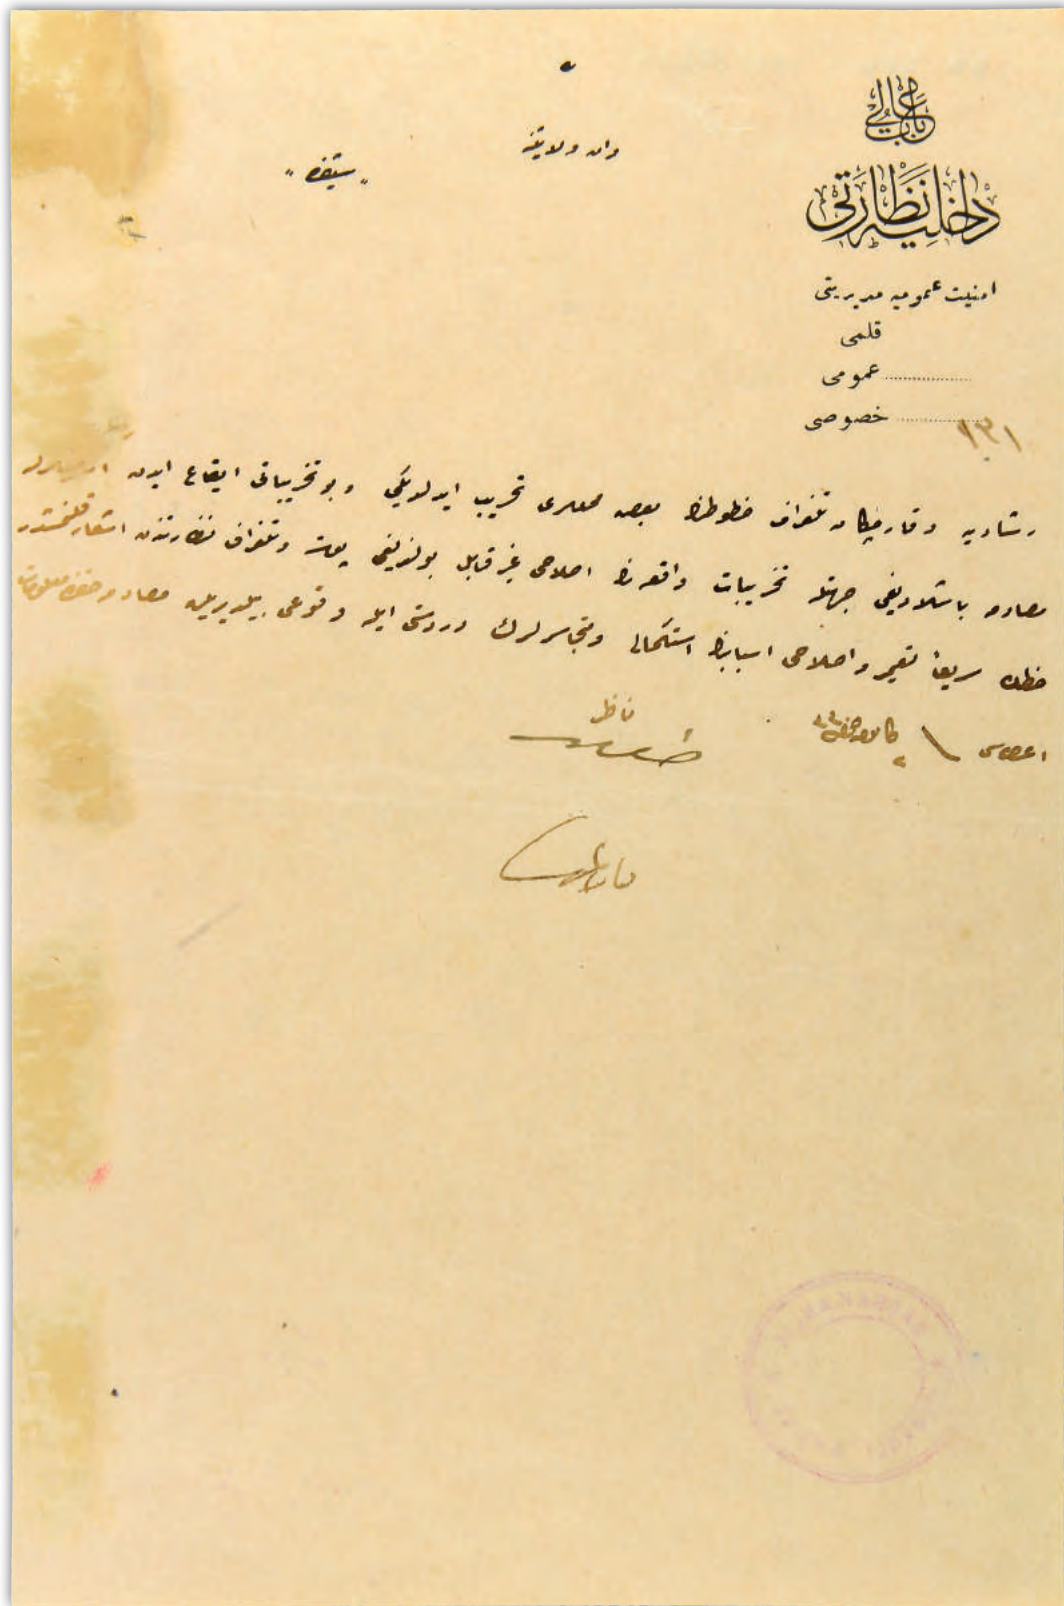 باب عالی
داخلیه نظارتی
امنیت عمومیه مدیریتی
قلمی
عمومی
خصوصی
وان ولایتنه
" شیفره "
رشادیه وقارچیکان تلغراف خطوطنك بعض محللری تخریب ایدلدیکی وبو تخریباتی ایقاع ایدن
مصادمه باشلادیغی جهتله تخریبات واقعه‌نك اصلاحی غیر قابل بولندیغی پوسته وتلغراف نظارتندن اشعار قلنمشدر
خطك سریعا تعمیر واصلاحی اسبابنك استکمالی ومتجاسرلرك دردستی ایله وقوعی بیلدیریلن مصادمه حقنده معلومات
اعطاسی
ناظر